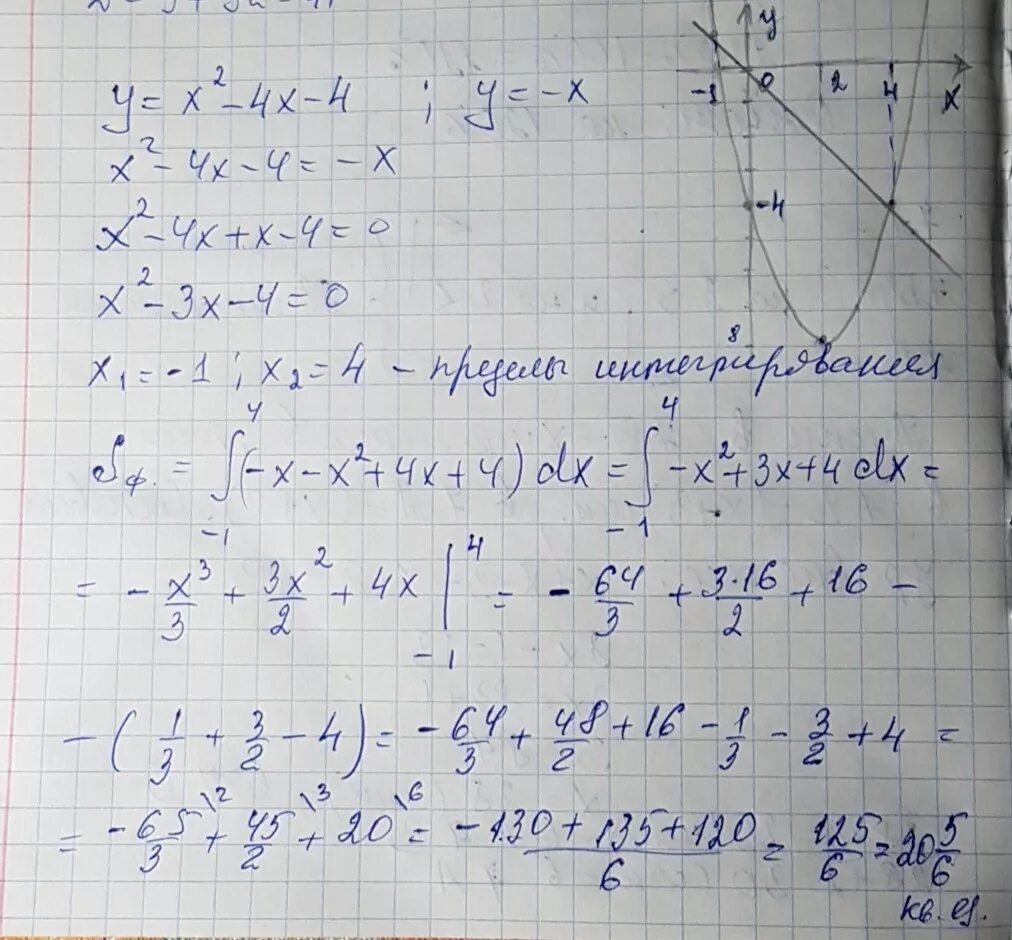 y = x² - 4x - 4 ; y = -x
x² - 4x - 4 = -x
x² - 4x + x - 4 = 0
x² - 3x - 4 = 0
x₁ = -1 ; x₂ = 4 - пределы интегрирования
Sф. = ∫₋₁⁴ (-x - x² + 4x + 4) dx = ∫₋₁⁴ -x² + 3x + 4 dx =
= - x³/3 + 3x²/2 + 4x |₋₁⁴ = - 64/3 + 3·16/2 + 16 -
- (1/3 + 3/2 - 4) = - 64/3 + 48/2 + 16 - 1/3 - 3/2 + 4 =
= - 65/3 \2 + 45/2 \3 + 20 \6 = (-130 + 135 + 120)/6 = 125/6 = 20 5/6
кв. ед.
y
-1 0 2 4 x
-4
8